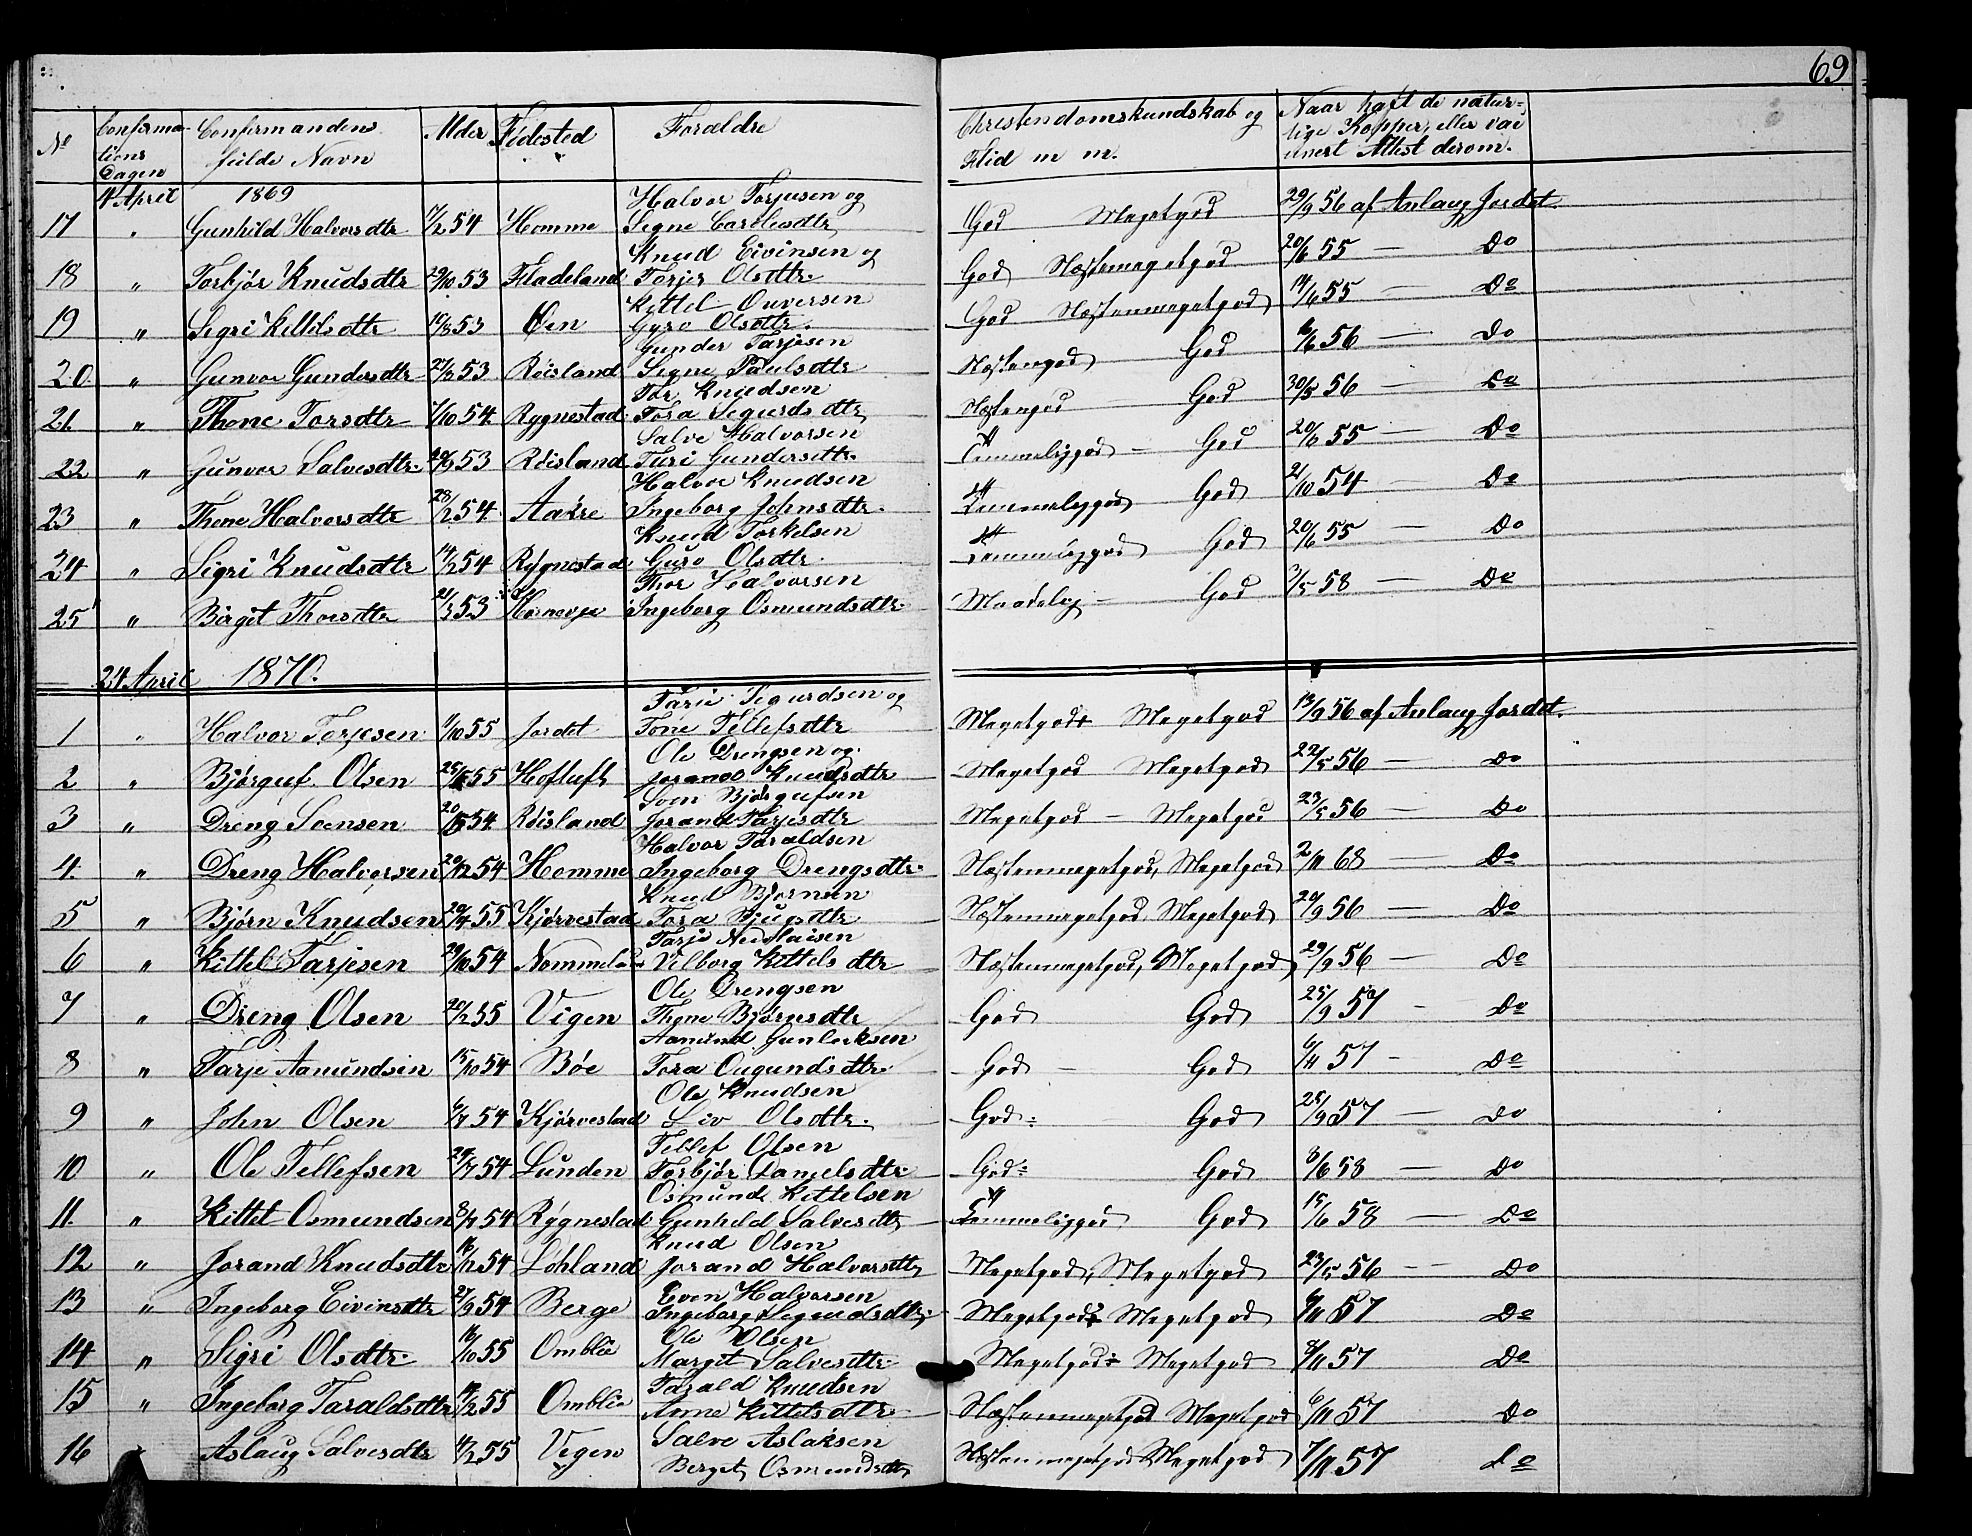 69
No Confirmations Dagen Confirmandens fulde Navn Alder Fødested Forældre Christendomskundskab og Flid m m. Naar haft de naturlige Kopper, eller vaccinert Attest derom.
4 April 1869
17 " Gunhild Halvorsdtr 54 Homme Halvor Torjusen og Signe God Megetgod 29/9 56 af Anlaug Jordet.
18 " Torbjør Knudsdtr 29/10 53 Fladeland Knud Eivinsen og Torjer Olsdtr. God Næstenmegetgod 20/6 55 — Do
19 " Sigri Kittelsdtr 53 Øen Kittel Ouversen Gyro Olsdtr. God Næstenmegetgod 14/6 55 — Do
20. " Gunvor Gundersdtr 53 Røisland Gunder Tarjesen Signe Paulsdtr Næstengod God 56 — Do
21 " Thone Torsdtr 7/10 54 Rygnestad Tor Knudsen Tora Sigurdsdtr Næstengod God 56 — Do
22 " Gunvor Salvesdtr. 53 Røisland Salve Halvorsen Turi Gundersdtr. Temmeliggod — God 20/6 55 — Do
23 " Thone Halvorsdtr 28/2 54 Halvor Knudsen Ingeborg Johnsdtr. Temmeliggod God 21/10 54 — Do
24 " Sigri Knudsdtr 14/2 54 Rygnestad Knud Torkelsen Guro Olsdtr. Temmeliggod God 20/6 55 — Do
25 " Birgit Thorsdtr 53 Thor Halvorsen Ingeborg Osmundsdtr. Maadelig — God 3/5 58 — Do
24 April 1870.
1 " Halvor Torjesen 1/10 55 Jordet Tarje Sigurdsen og Tone Tellefsdtr Megetgod Megetgod 13/9 56 af Anlaug Jordet.
2 " Bjørguf Olsen 55 Hoftuft Ole Drengsen og Jorand Knudsdtr Megetgod Megetgod 22/5 56 — Do
3 " Dreng Svensen 54 Røisland Sven Bjørgufsen Jorand Tarjesdtr Megetgod — Megetgod 23/5 56 — Do
4. " Dreng Halvorsen 20/12 54 Homme Halvor Taraldsen Ingeborg Drengsdtr. Næstenmegetgod, Megetgod 2/11 68 — Do
5 " Bjørn Knudsen 55 Kjørvestad Knud Bjørnsen Tora Næstenmegetgod Megetgod 20/9 56 — Do
6 " Kittel Tarjesen 29/10 54 Tarje Vilborg Kittelsdtr Næstenmegetgod, Megetgod 29/9 56 — Do
7 " Dreng Olsen 20/2 55 Vigen Ole Drengsen Thone Bjørnsdtr God God 25/9 57 — Do
8 " Tarje Aamundsen 15/10 54 Bøe Aamund Gunleiksen Tora Ougundsdtr. God — God 6/11 57 — Do
9 " John Olsen 6/7 54 Kjørvestad Ole Knudsen Liv Olsdtr. God God 25/9 57 — Do
10 " Ole Tellefsen 29/7 54 Lunden Tellef Olsen Torbjør Danielsdtr. God God 8/6 58 — Do
11. " Kittel Osmundsen 54 Rygnestad Osmund Kittelsen Gunhild Salvesdtr Temmeliggod God 15/6 58 — Do
12 " Jorand Knudsdtr 16/12 54 Løhland Knud Olsen Jorand Halvorsdtr Megetgod, Megetgod 23/5 56 — Do
13 " Ingeborg Eivinsdtr 27/9 54 Berge Even Halvorsen Ingeborg Sigurdsdtr. Megetgod Megetgod 57 Do
14 " Sigri Olsdtr. 16/10 55 Omblie Ole Olsen Margit Salvesdtr. Megetgod Megetgod 8/11 57 Do
15 " Ingeborg Taraldsdtr 55 Omblie Tarald Knudsen Anne Kittelsdtr Næstenmegetgod Megetgod 6/11 57 Do
16 Aslaug Salvesdtr 55 Vigen Salve Aslaksen Berget Osmundsdtr Næstenmegetgod Megetgod 7/11 57 Do